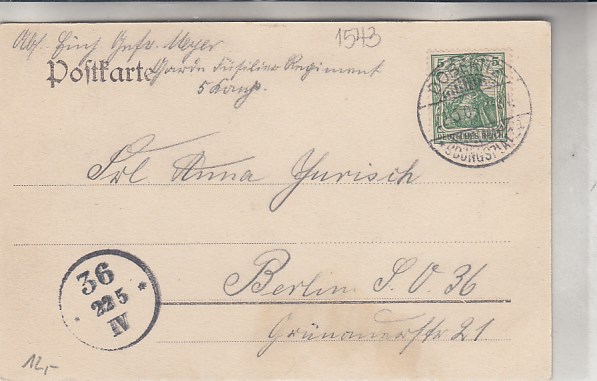 1543
Abs. Einj. Gefr. Meyer
Postkarte
Garde Füsilier Regiment
5 Komp.
5 5
DEUTSCHES REICH
DÖBERITZ
ÜBUNGSPLATZ
Frl Anna Jurisch
Berlin S. O. 36
Grünauerstr 21
36
22 5
IV
12,-